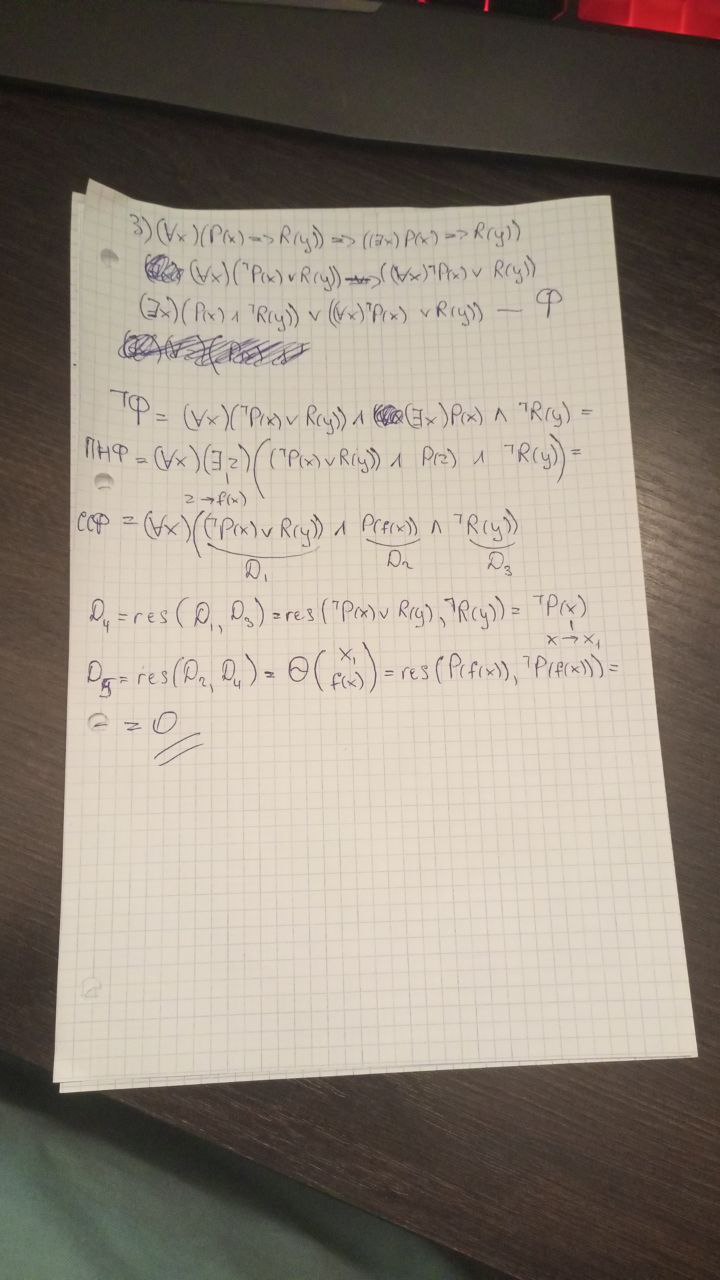 3) (∀x)(P(x) => R(y)) => ((∃x)P(x) => R(y))
(∀x)(¬P(x) ∨ R(y)) => ((∀x)¬P(x) ∨ R(y))
(∃x)(P(x) ∧ ¬R(y)) ∨ ((∀x)¬P(x) ∨ R(y)) — Ф
¬Ф = (∀x)(¬P(x) ∨ R(y)) ∧ (∃x)P(x) ∧ ¬R(y) =
ПНФ = (∀x)(∃z)((¬P(x) ∨ R(y)) ∧ P(z) ∧ ¬R(y)) =
z → f(x)
ССФ = (∀x)((¬P(x) ∨ R(y)) ∧ P(f(x)) ∧ ¬R(y))
D₁ D₂ D₃
D₄ = res(D₁, D₃) = res(¬P(x) ∨ R(y), ¬R(y)) = ¬P(x)
x → x₁
D₅ = res(D₂, D₄) = Θ(x₁ f(x)) = res(P(f(x)), ¬P(f(x))) =
= 0